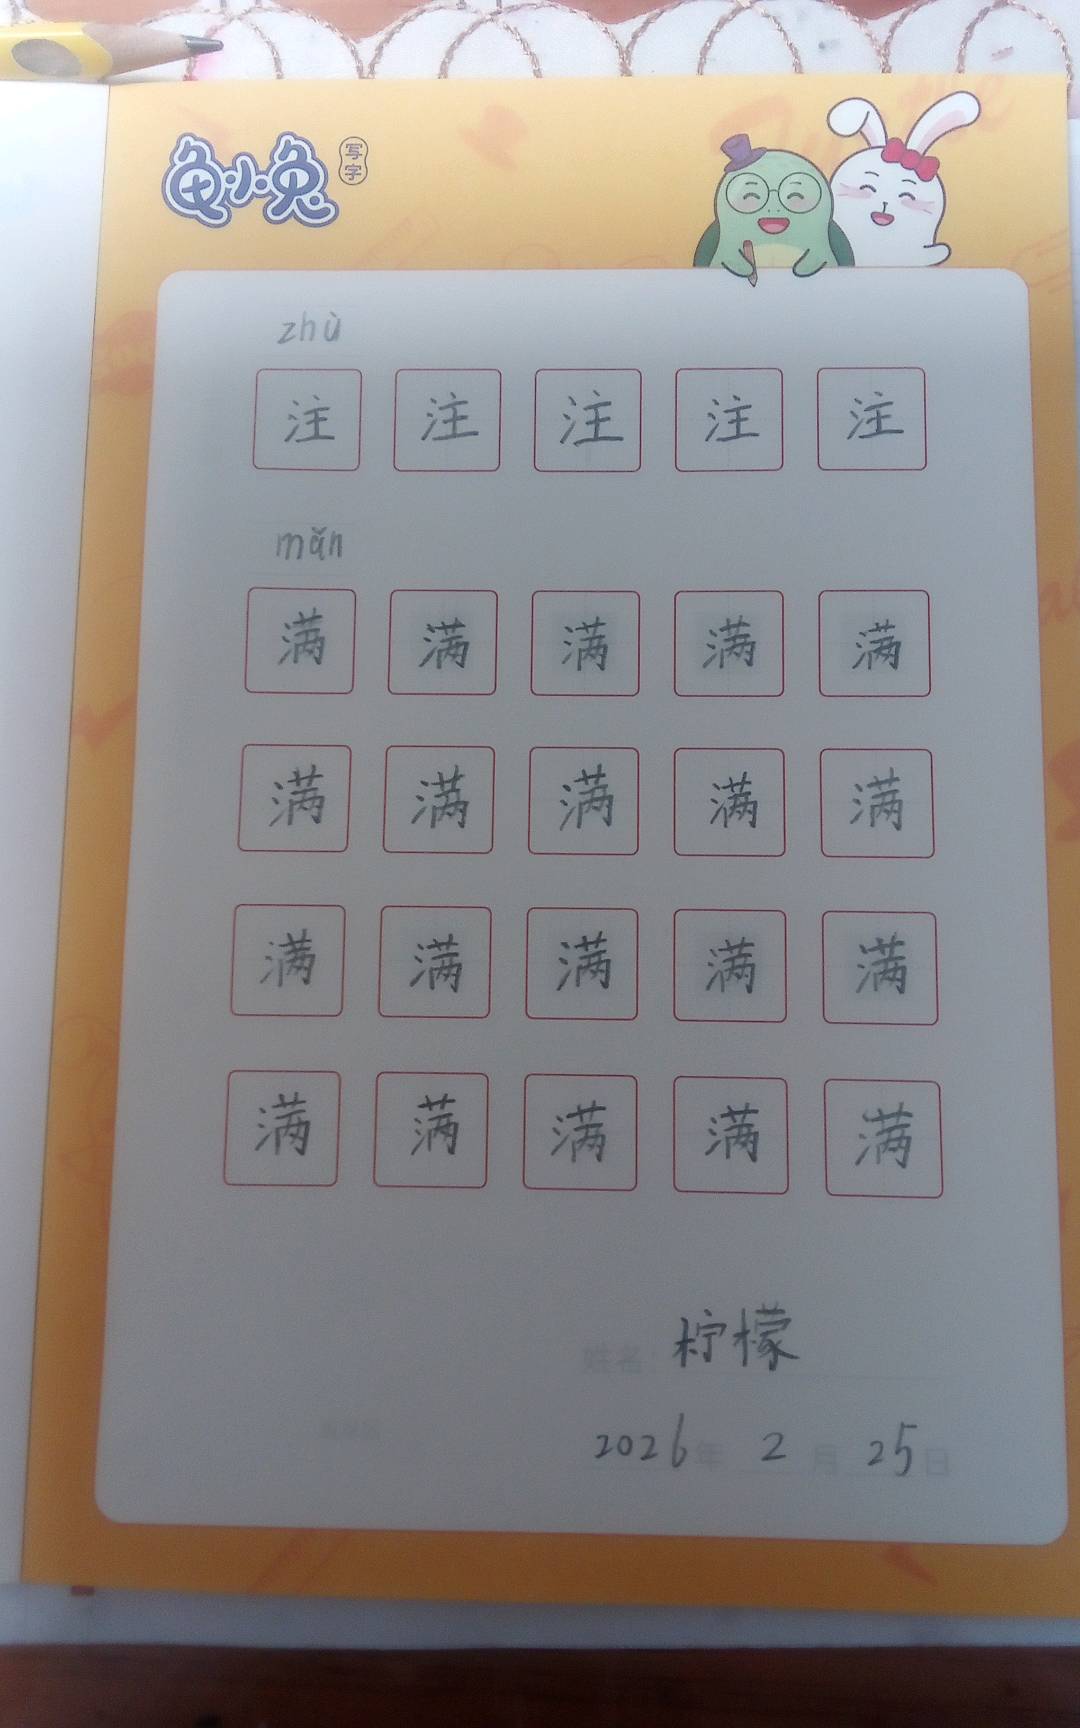 龟小兔 写字
zhù
注 注 注 注 注
mǎn
满 满 满 满 满
满 满 满 满 满
满 满 满 满 满
满 满 满 满 满
姓名 柠檬
2026年 2月 25日